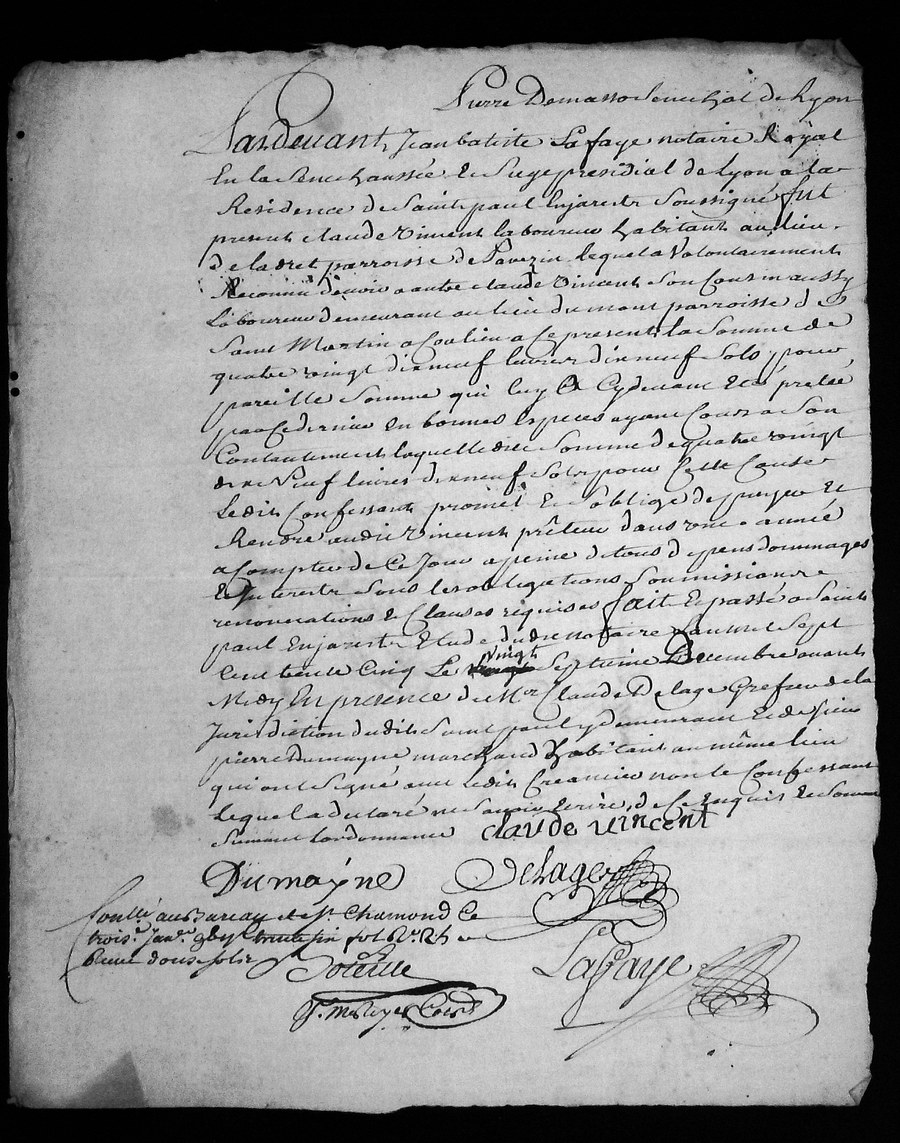 Pierre Demasso Senechal de Lyon
Pardevant Jean batiste Lafaye notaire Royal
En la Senechaussée & Siege presidial de Lyon a la
Residence de Saint paul Enjarestz Soussigné fut
present claude Vincent laboureur habitant au lieu
de ladret parroisse de Pavezin lequel a Volontairement
Reconnu devoir a autre claude Vincent Son Cousin aussy
Laboureur demeurant au lieu du mont parroisse de
Saint Martin a Coalieu a Ce present la Somme de
quatre vingt dix neuf livres dix neuf Sols pour
pareille Somme qui luy a Cydevant Eté pretée
par Cedernier En bonnes Especes ayant Cours a Son
Contantement laquelle dite Somme de quatre vingt
dix Neuf livres dix neuf Sols pour Cette Cause
Ledit Confessant promet & Soblige de payer &
Rendre audit Vincent prêteur dans une année
a Compter de Ce Jour a peine de tous depens dommages
& Interestz Sous les obligations Soumissions
renonciations & Clauses requises fait & passé a Saint
paul Enjarestz Etude dudit notaire Lan mil Sept
Cent trente Cinq Le vingt Septieme Decembre avant
Midy En presence de Mre Claude Delage Grefier de la
Jurisdiction dudit Saint paul y demeurant & de Sieur
pierre Dumayne marchand habitant au même lieu
qui ont Signé avec ledit Creancier non le Confessant
lequel a declaré ne Savoir Ecrire, de Ce Enquis & Sommé
Suivant Lordonnance claude vincent
Dumayne Delage
Conllé au Bureau de St. Chamond Ce
trois.e Janv.er fol
Receu douse Sols
Lafaye